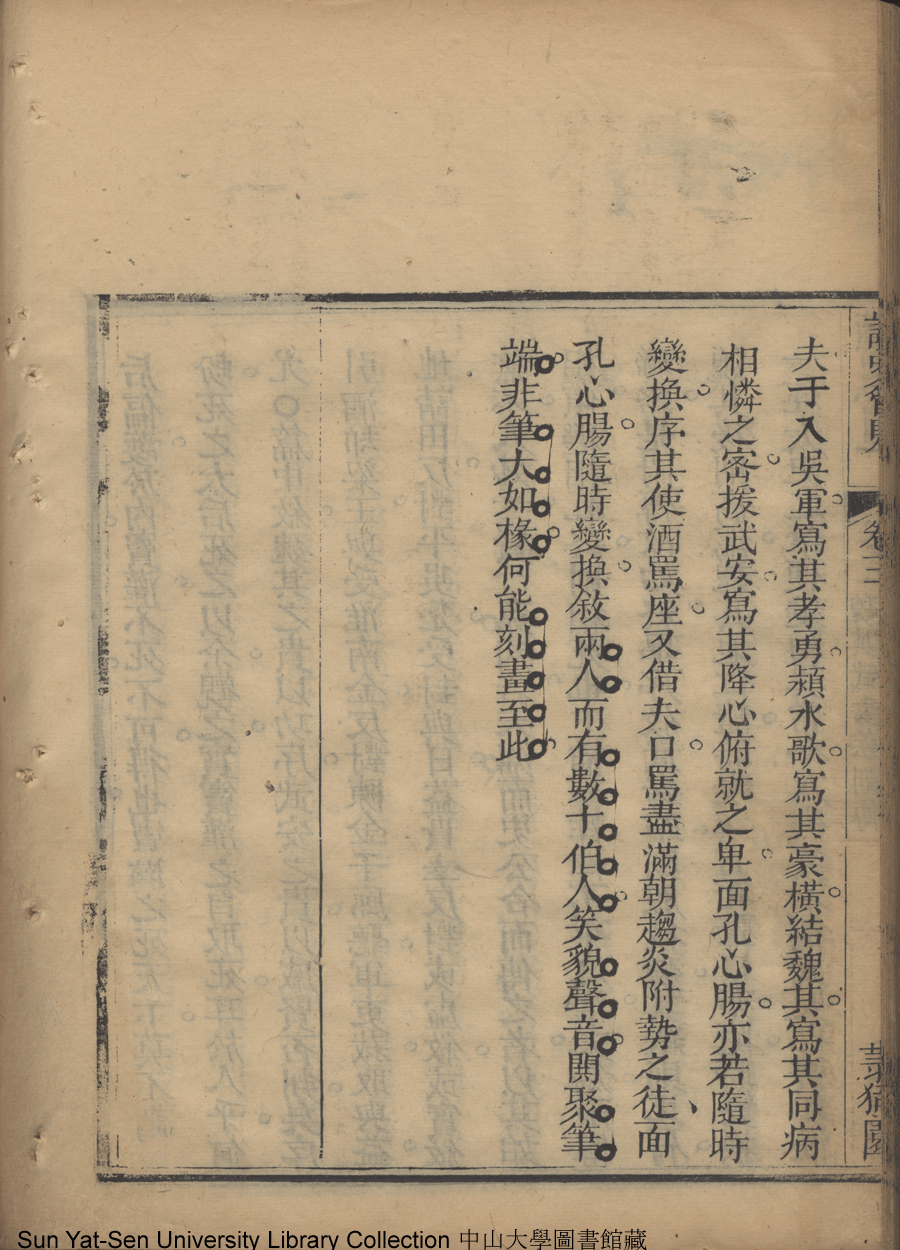 夫于入吳軍寫其孝勇潁水歌寫其豪橫結魏其寫其同病
相憐之密援武安寫其降心俯就之卑面孔心腸亦若隨時
變換序其使酒罵座又借夫口罵盡滿朝趨炎附勢之徒面
孔心腸隨時變換敘兩人而有數十伯人笑貌聲音閧聚筆
端非筆大如椽何能刻畫至此
卷三
Sun Yat-Sen University Library Collection 中山大學圖書館藏